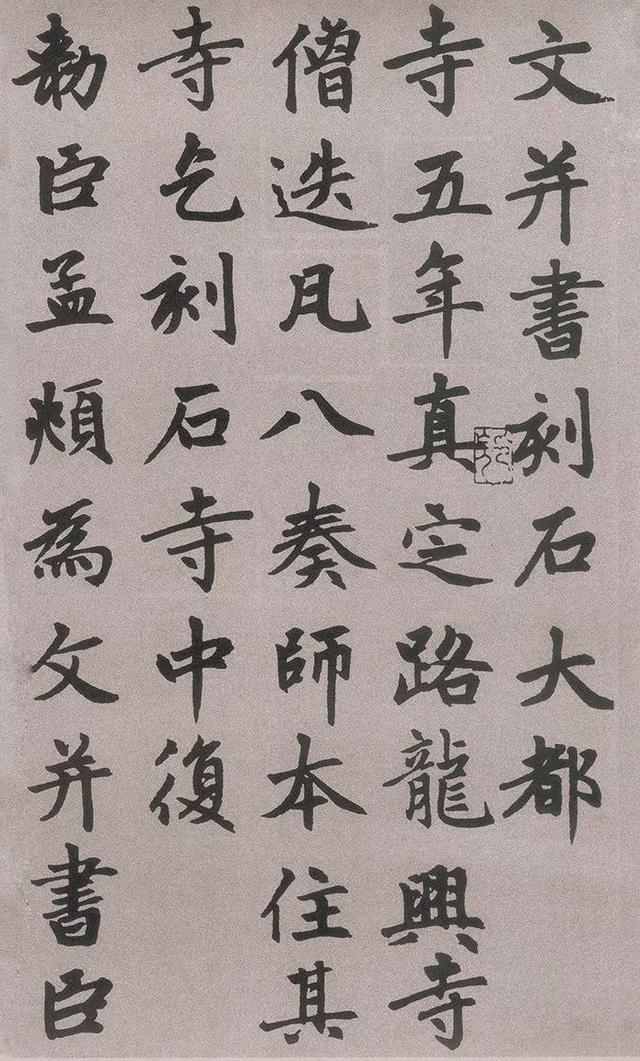 文并書刻石大都
寺五年真定路龍興寺
僧迭凡八奏師本住其
寺乞刻石寺中復
勅臣孟頫為文并書臣